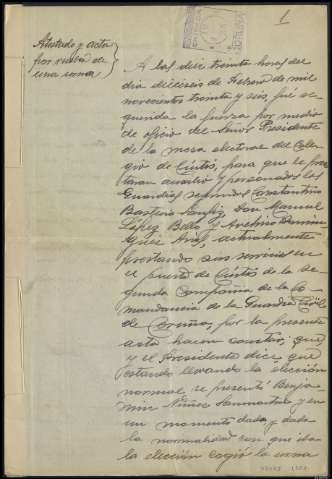 1
Atestado y acta
por rotura de
una urna
A las diez treinta horas del
dia dieciseis de Febrero de mil
novecientos treinta y seis, fué re-
querida la fuerza por medio
de oficio del Señor Presidente
de la mesa electoral del Cole-
gio de para que le pres-
taran auxilio y personados los
Guardias segundos Constantino
Don Manuel
López Bello y Avelino Domin-
guez actualmente
prestando sus servicios en
el puesto de de la se-
gunda Compañia de la Co-
mandancia de la Guardia Civil
de Coruña, por la presente
acta hacen constar: que
y el Presidente dice que
estando llevando la elección
normal se presentó Benja-
min Nuñez y en
un momento dado y dada
la normalidad con que iba
la elección cogió la urna